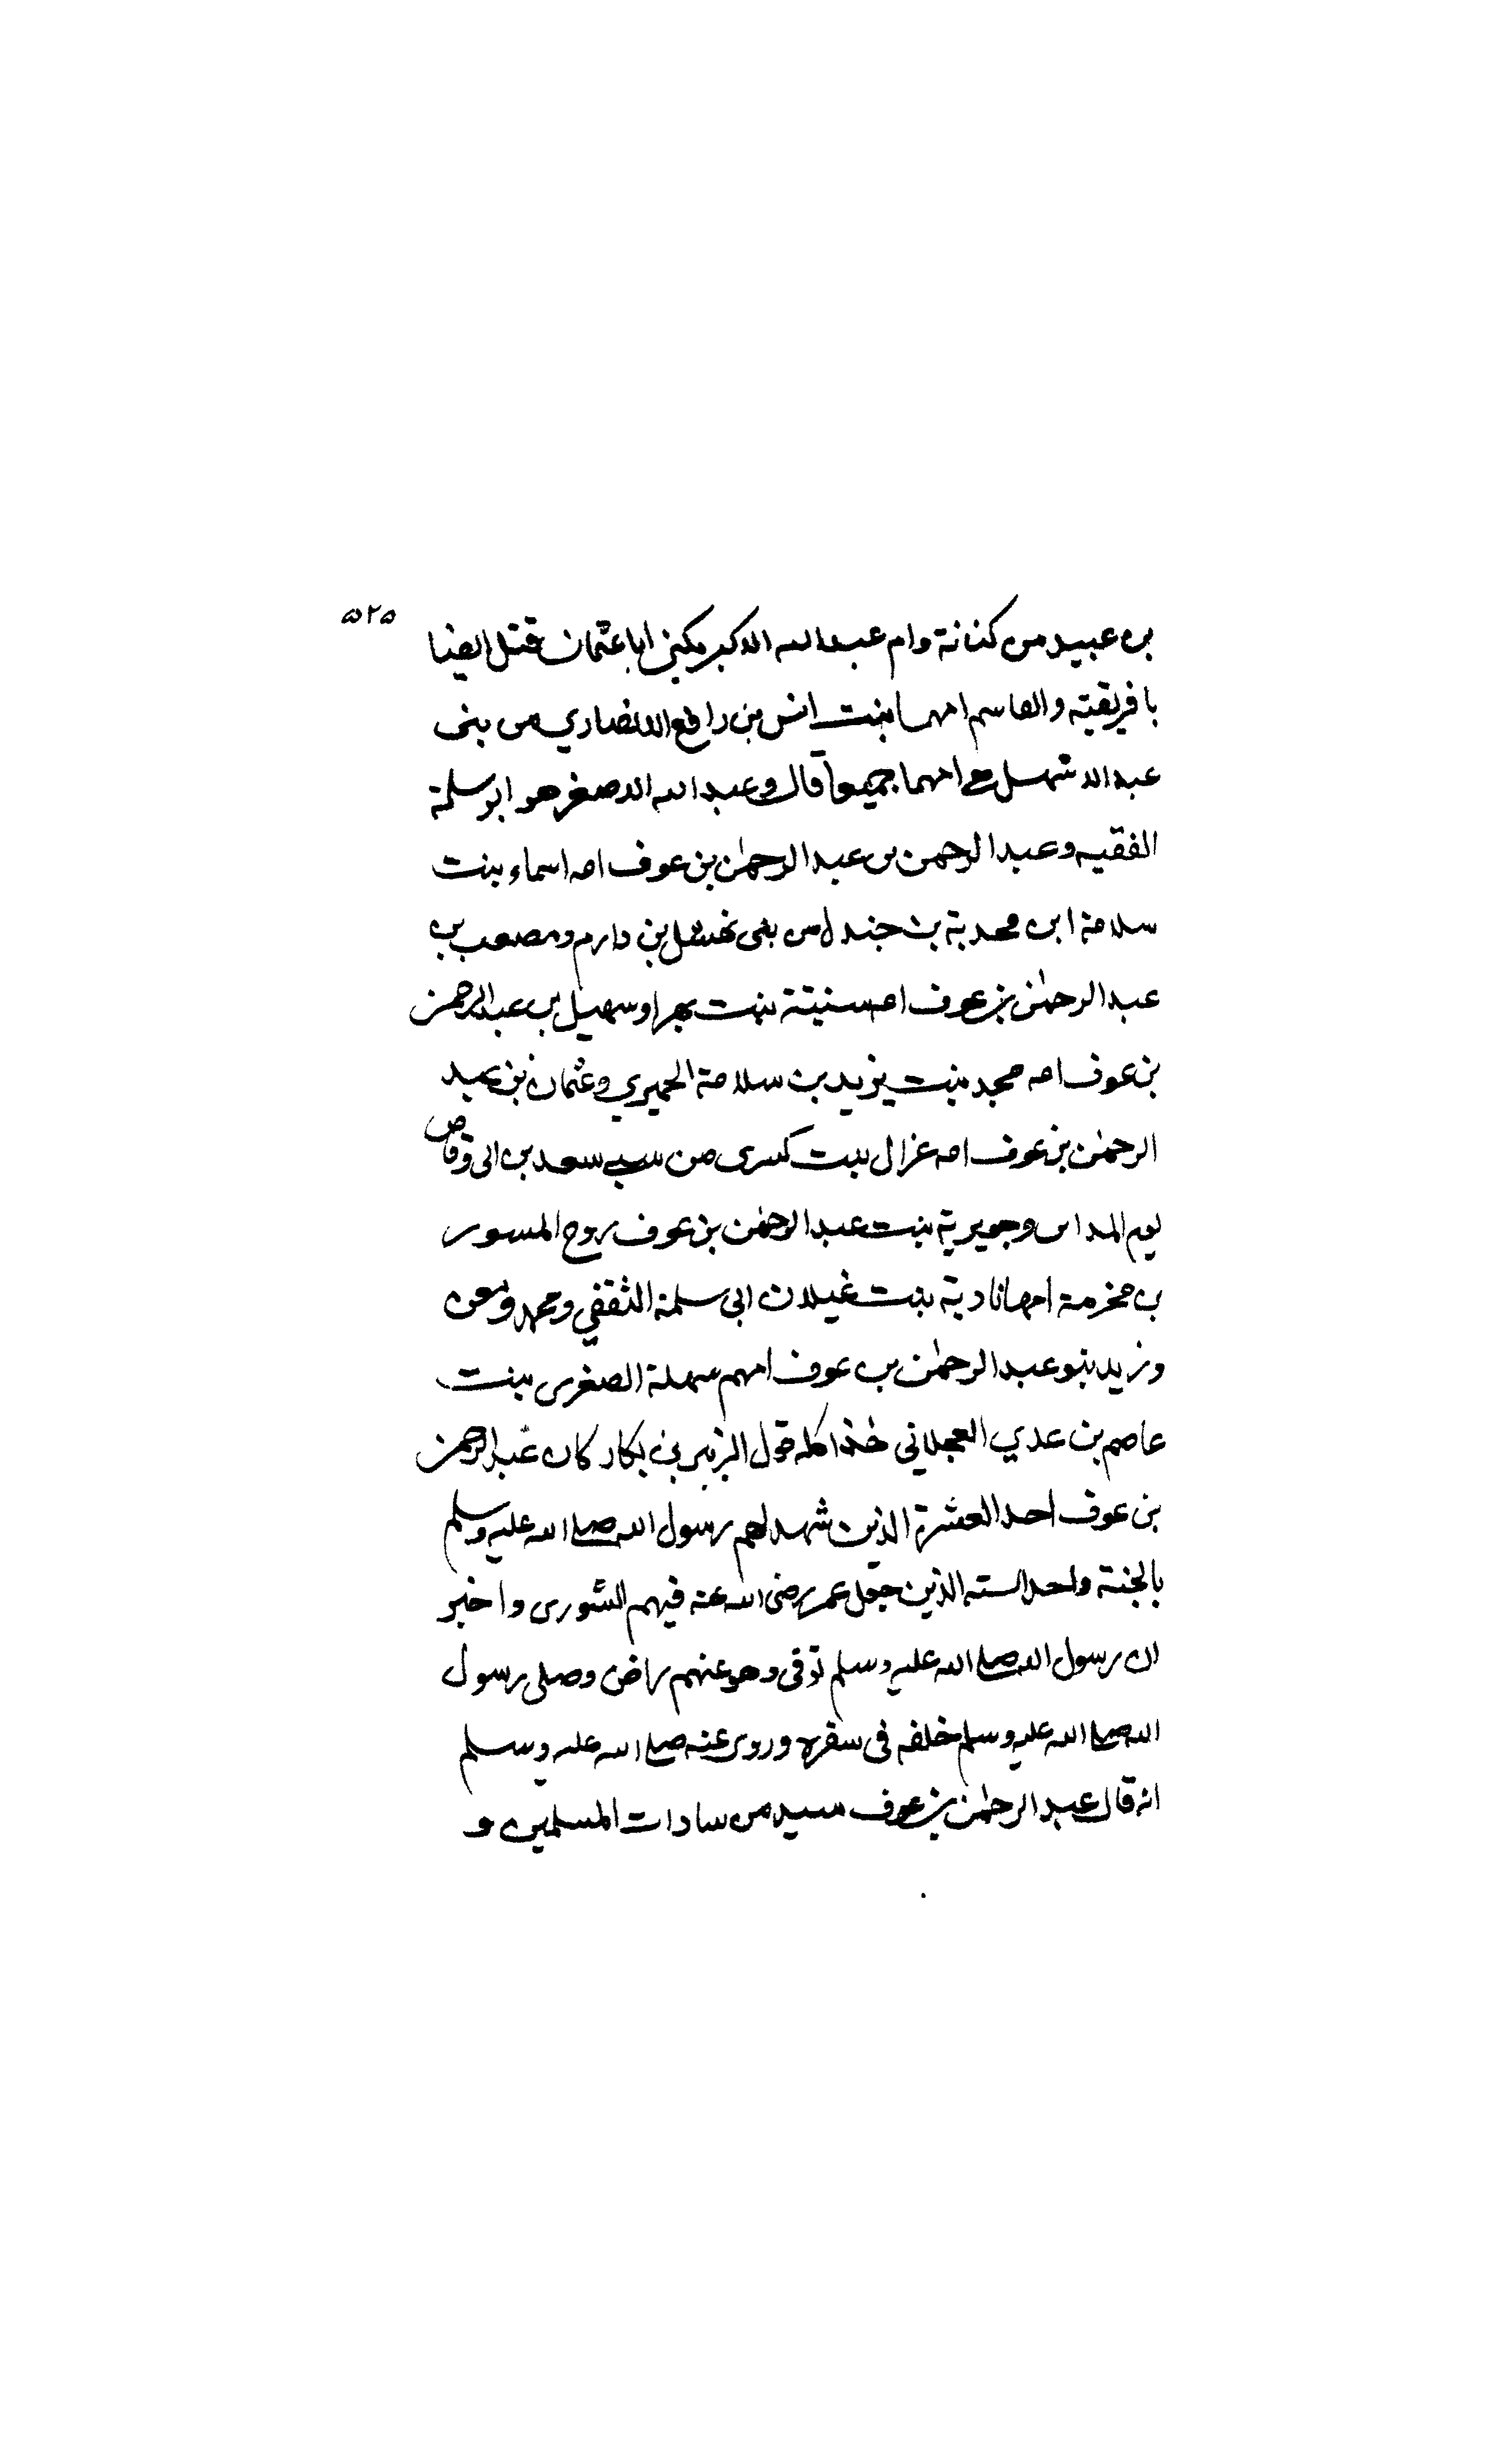 ٥٢٥
بن عبيد من كنانة وام عبد الله الاكبر يكنى ابا عثمان قتل ايضا
بافريقيته والقاسم امهما بنت انس بن رافع الانصاري من بنى
عبد الاشهل هي امهما جميعا قال وعبد الله الاصغر هو ابو سلمة
الفقيه وعبد الرحمن بن عبد الرحمٰن بن عوف امه اسماء بنت
سلامة ابن مخربة بن جندل من بنى نهشل بن دارم ومصعب بن
عبد الرحمٰن بن عوف امه سنيتة بنت بهرا وسهيل بن عبد الرحمن
بن عوف امه مجد بنت يزيد بن سلامة الحميري وعثمان بن عبد
الرحمٰن بن عوف امه غزال بنت كسرى من سبي سعد بن ابى وقاص
يوم المداس وجويرية بنت عبد الرحمٰن بن عوف زوج المسور
بن مخرمة امها نادية بنت غيلان ابى سلمة الثقفي ومحمد ومعن
وزيد بنو عبد الرحمٰن بن عوف امهم سهلة الصغرى بنت
عاصم بن عدي العجلاني هذا كله قول الزبير بن بكار كان عبد الرحمن
بن عوف احد العشرة الذين شهد لهم رسول الله صلى الله عليه وسلم
بالجنة واحد السته الذين جعل عمر رضى الله عنه فيهم الشورى واخبر
ان رسول الله صلى الله عليه وسلم توفى وهو عنهم راض وصلى رسول
الله صلى الله عليه وسلم خلفه فى سفره وروى عنه صلى الله عليه وسلم
انه قال عبد الرحمٰن بن عوف سيد من سادات المسلمين و